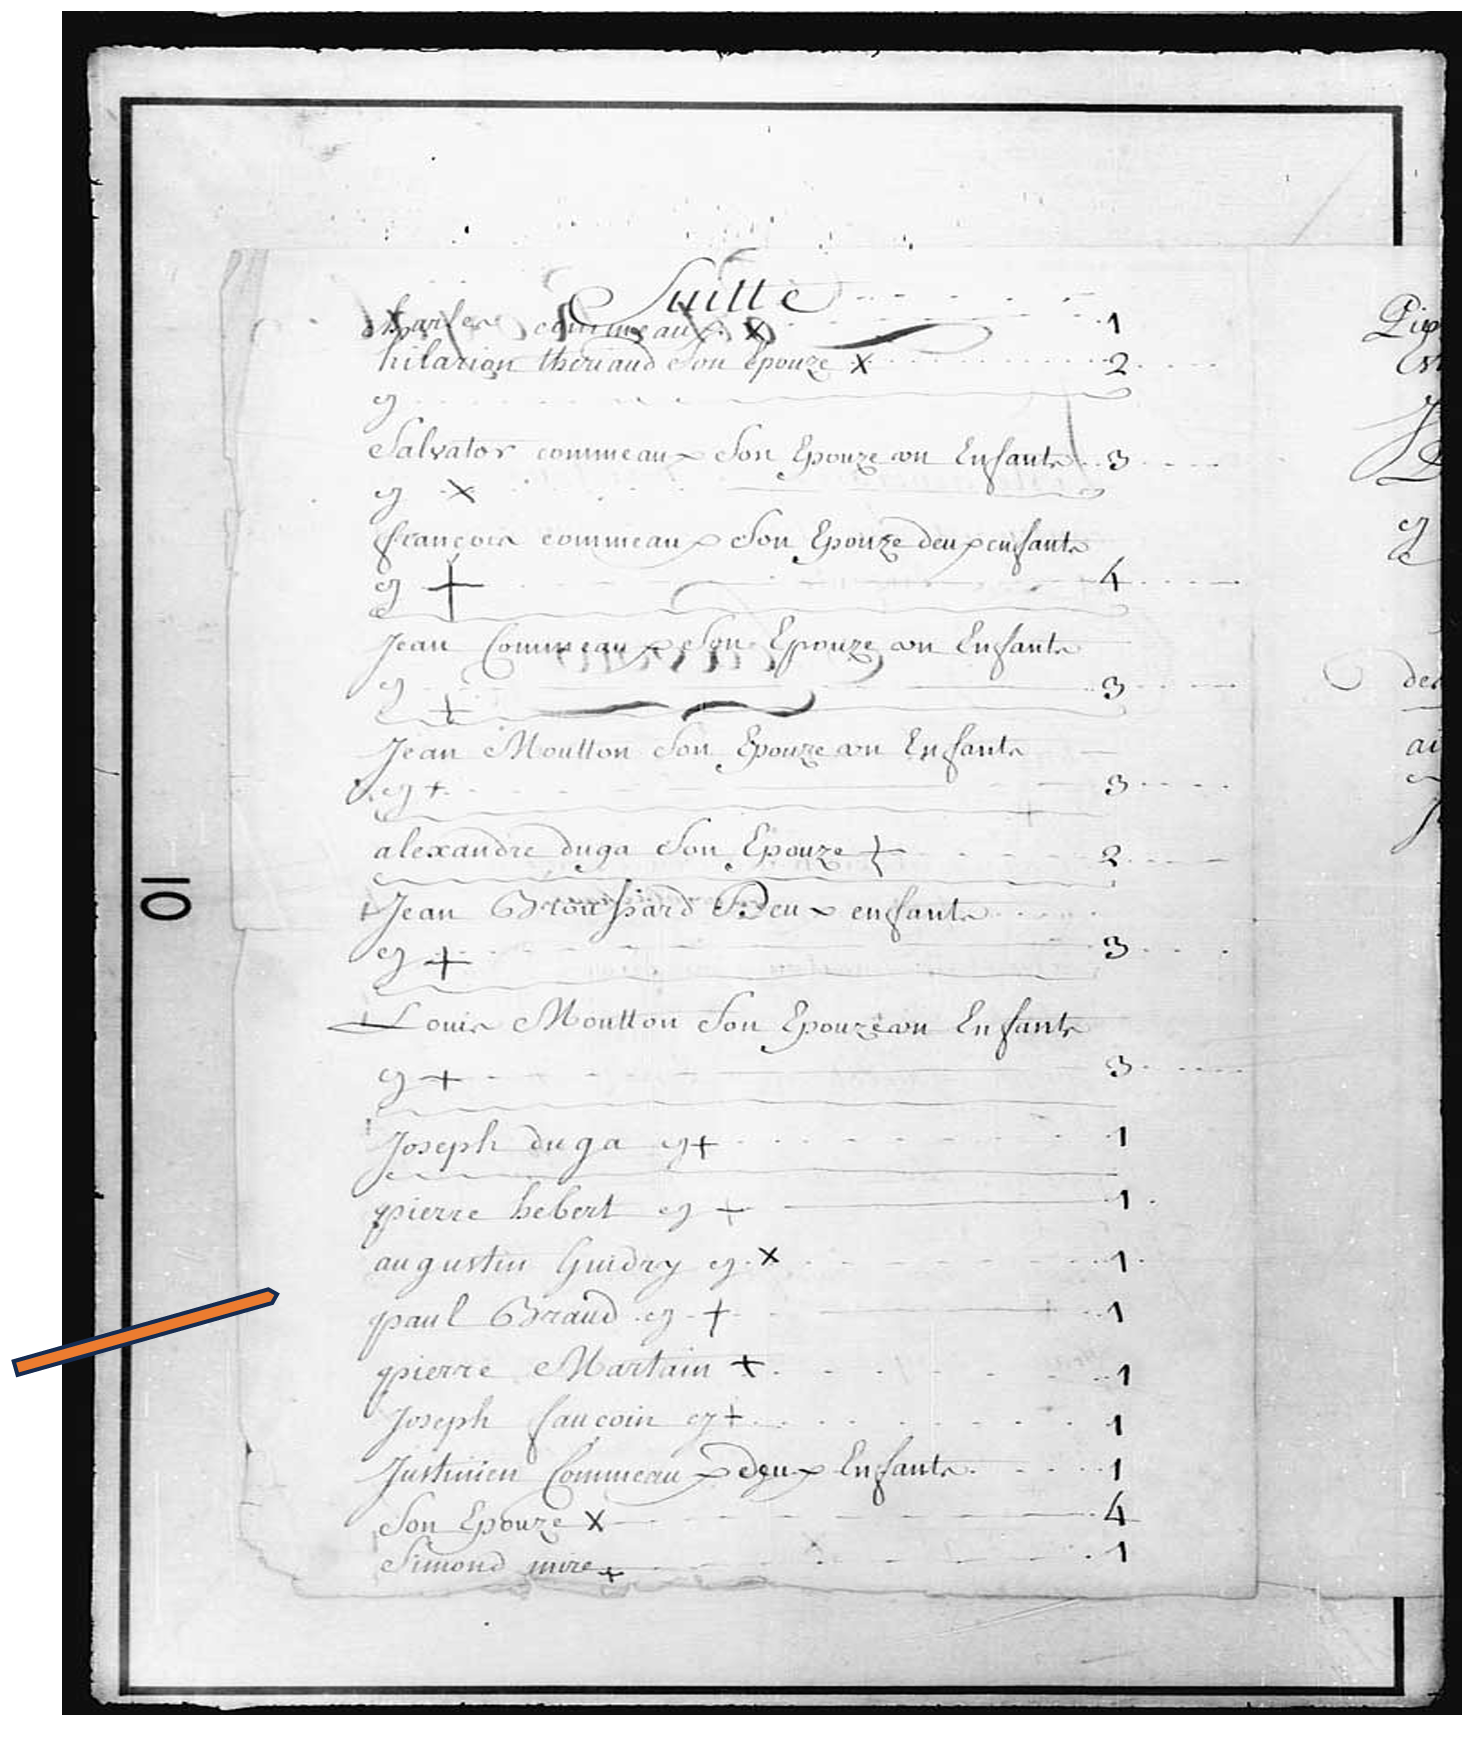 Suitte
Charles commeaux x 1
hilarion theriaud Son Epouze x 2
ej
Salvator commeaux Son Epouze un Enfants 3
ej x
françois commeaux Son Epouze deux enfants
ej + 4
Jean Commeaux Son Epouze un Enfants
ej + 3
Jean Moutton Son Epouze un Enfants
ej + 3
alexandre duga Son Epouze + 2
Jean Broussard Deux enfants
ej + 3
Louis Moutton Son Epouze un Enfants
ej + 3
Joseph duga ej + 1
pierre hebert ej + 1
augustin Guidry ej x 1
paul Braud ej + 1
pierre Martain + 1
Joseph faucoin ej + 1
Justinien Commeaux deux Enfants 1
Son Epouze x 4
Simond mire + 1
10